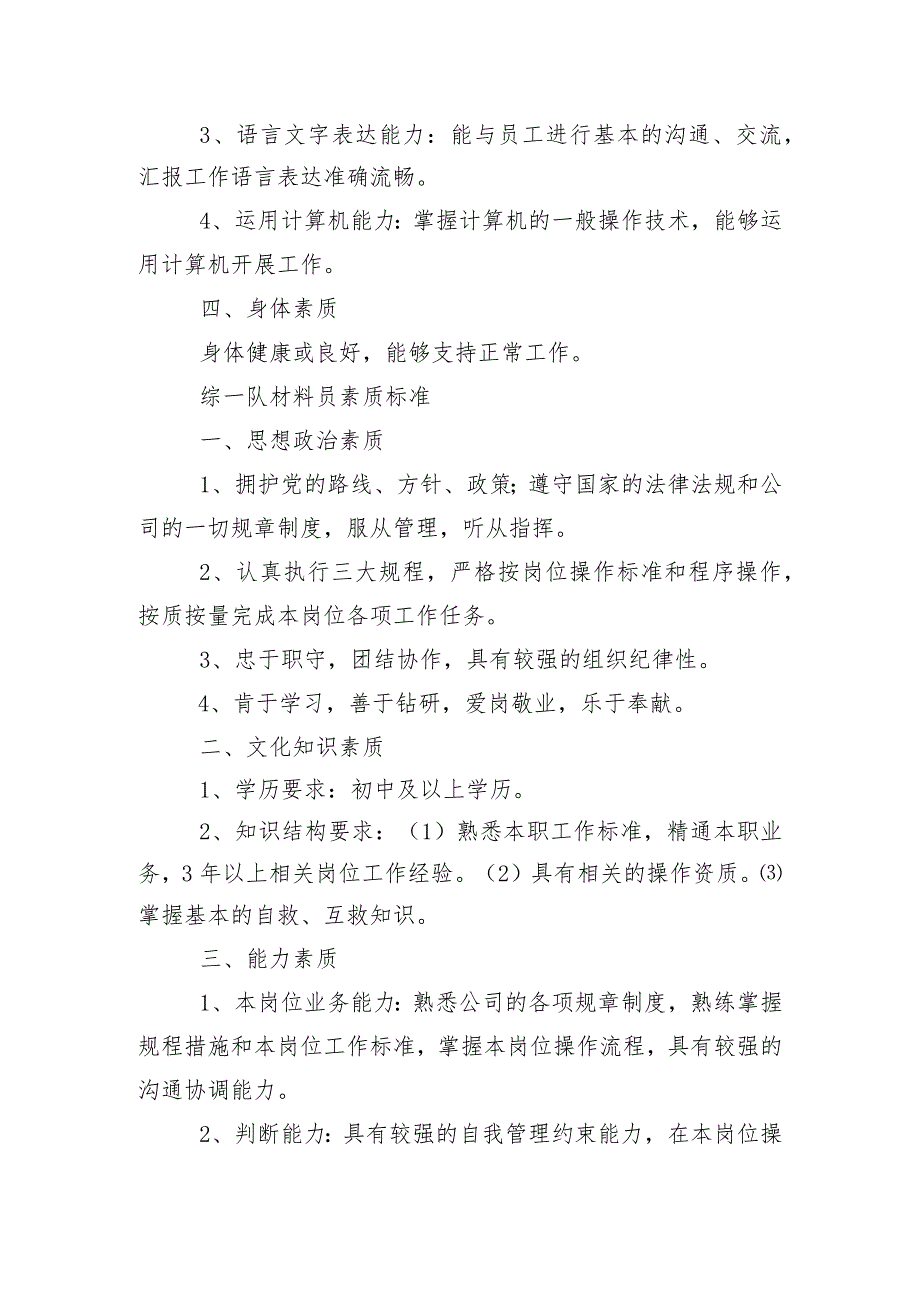 3、语言文字表达能力：能与员工进行基本的沟通、交流，
汇报工作语言表达准确流畅。
4、运用计算机能力：掌握计算机的一般操作技术，能够运
用计算机开展工作。
四、身体素质
身体健康或良好，能够支持正常工作。
综一队材料员素质标准
一、思想政治素质
1、拥护党的路线、方针、政策；遵守国家的法律法规和公
司的一切规章制度，服从管理，听从指挥。
2、认真执行三大规程，严格按岗位操作标准和程序操作，
按质按量完成本岗位各项工作任务。
3、忠于职守，团结协作，具有较强的组织纪律性。
4、肯于学习，善于钻研，爱岗敬业，乐于奉献。
二、文化知识素质
1、学历要求：初中及以上学历。
2、知识结构要求：（1）熟悉本职工作标准，精通本职业
务，3 年以上相关岗位工作经验。（2）具有相关的操作资质。⑶
掌握基本的自救、互救知识。
三、能力素质
1、本岗位业务能力：熟悉公司的各项规章制度，熟练掌握
规程措施和本岗位工作标准，掌握本岗位操作流程，具有较强的
沟通协调能力。
2、判断能力：具有较强的自我管理约束能力，在本岗位操